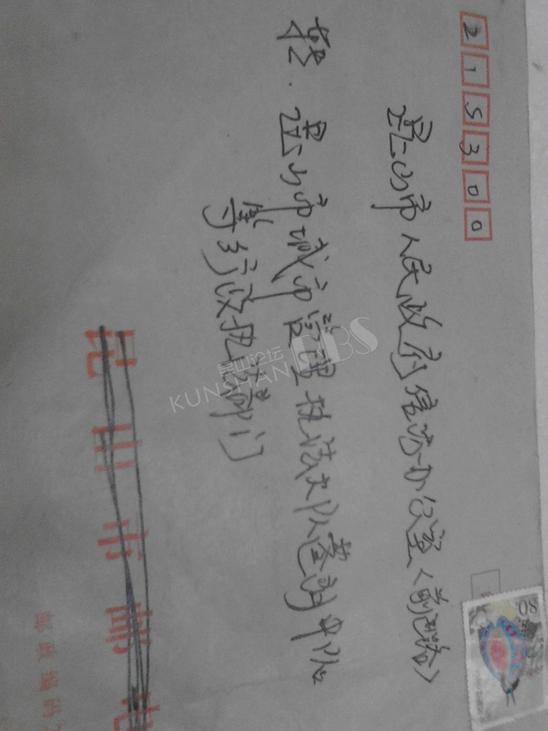 215300
昆山市人民政府信访办公室(前进路)
转.昆山市城市管理执法大队蓬朗中队
等行政执法部门
昆山论坛
KUNSHAN BBS
昆山市邮电
邮政编码
80